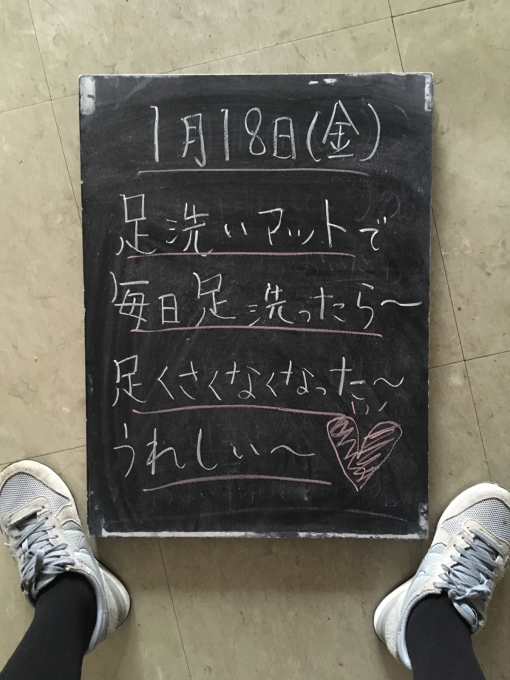 1月18日(金)
足洗いマットで
毎日足洗ったら〜
足くさくなくなった〜
うれしい〜